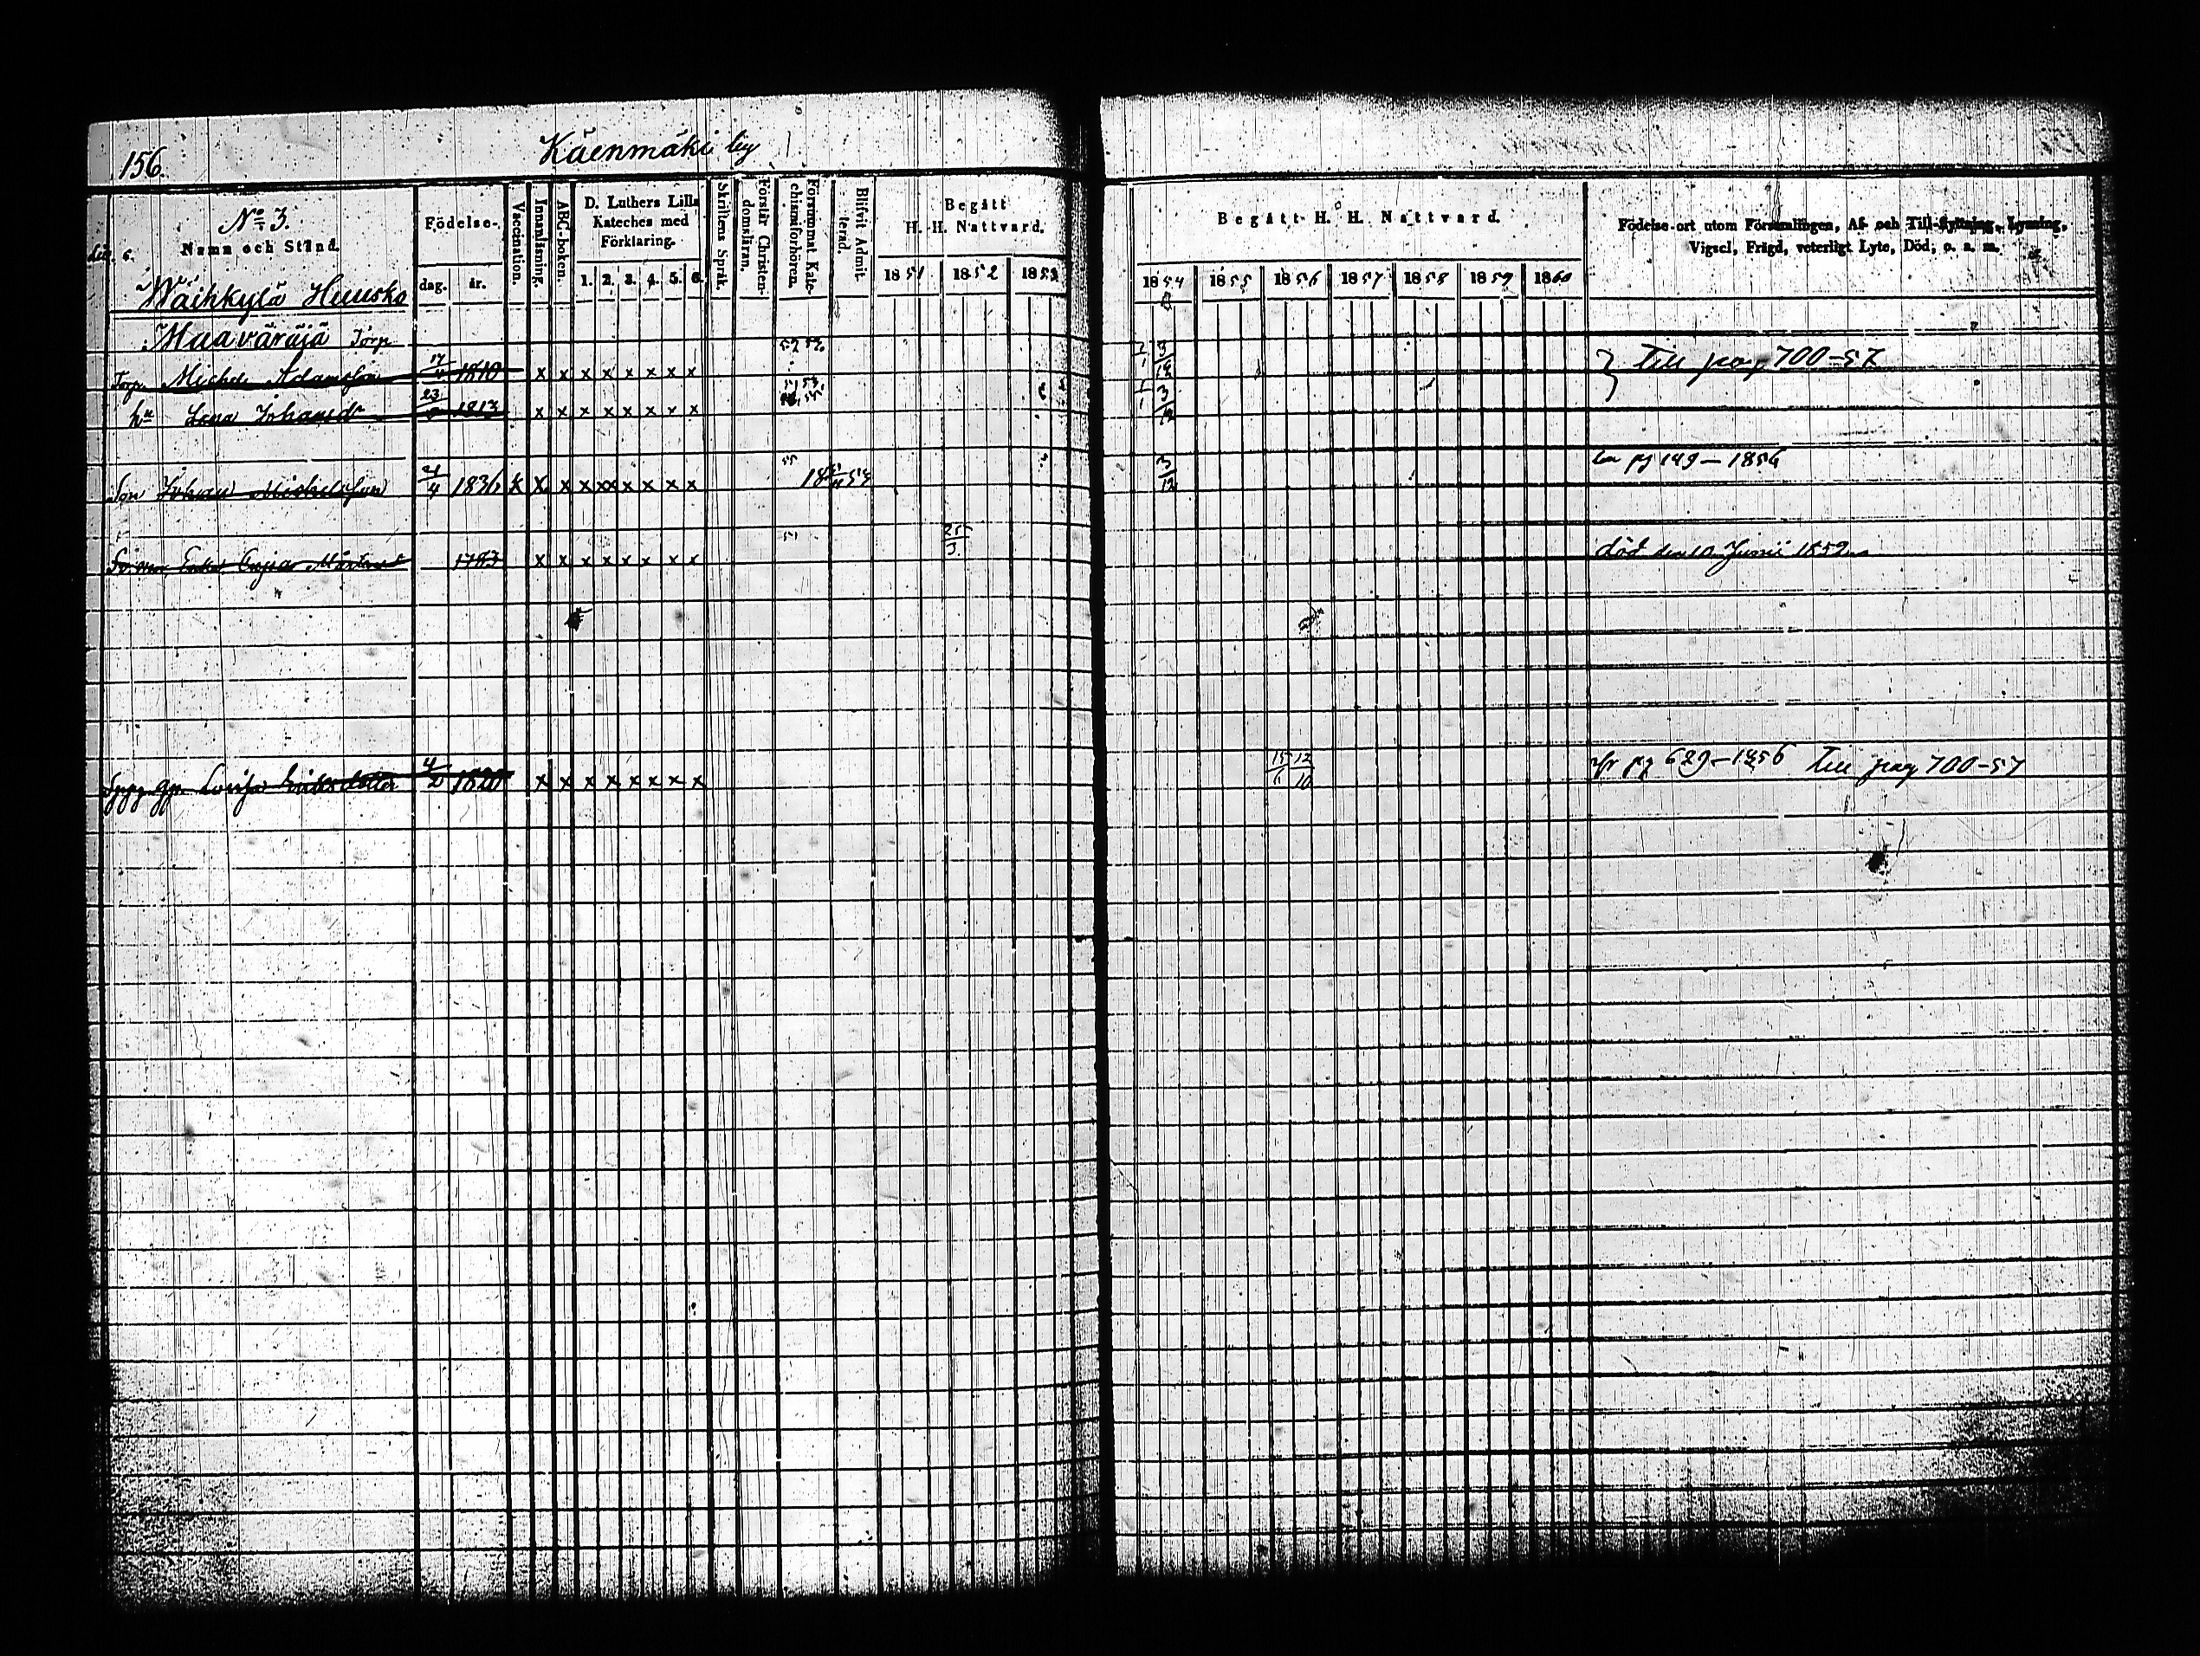 156
Käenmäki by
No 3.
Namn och Stånd.
Födelse-
dag.
år.
Vaccination.
Innanläsning.
ABC-boken.
D. Luthers Lilla
Kateches med
Förklaring.
1. 2. 3. 4. 5. 6.
Skriftens Språk.
Förstår Christen-
domsläran.
Försummat Kate-
chismiförhören.
Blifvit Admit-
terad.
Begått
H. H. Nattvard.
1851 1852 1853
Begått H. H. Nattvard.
1854 1855 1856 1857 1858 1859 1860
Födelse-ort utom Församlingen, Af- och Till-flyttning, Lysning,
Vigsel, Frägd, veterligt Lyte, Död, o. s. m.
Wäihkylä Huusko
Maaväräjä Torp
Torp. Michel Adamsson 17/4 1810 x x x x x x x x } Till pag 700-57
hu Lena Johansdr 23 1813 x x x x x x x x
Son Johan Michelsson 4/4 1836 x x x x x x x x x 3/12 pg 149-1856
Enka Caisa Mårtensd 1783 x x x x x x x x 25/3 död den 10 Junii 1852
Lovisa Eriksdotter 4/2 1820 x x x x x x x x 15/6 12/10 fr pg 629-1856 Till pag 700-57